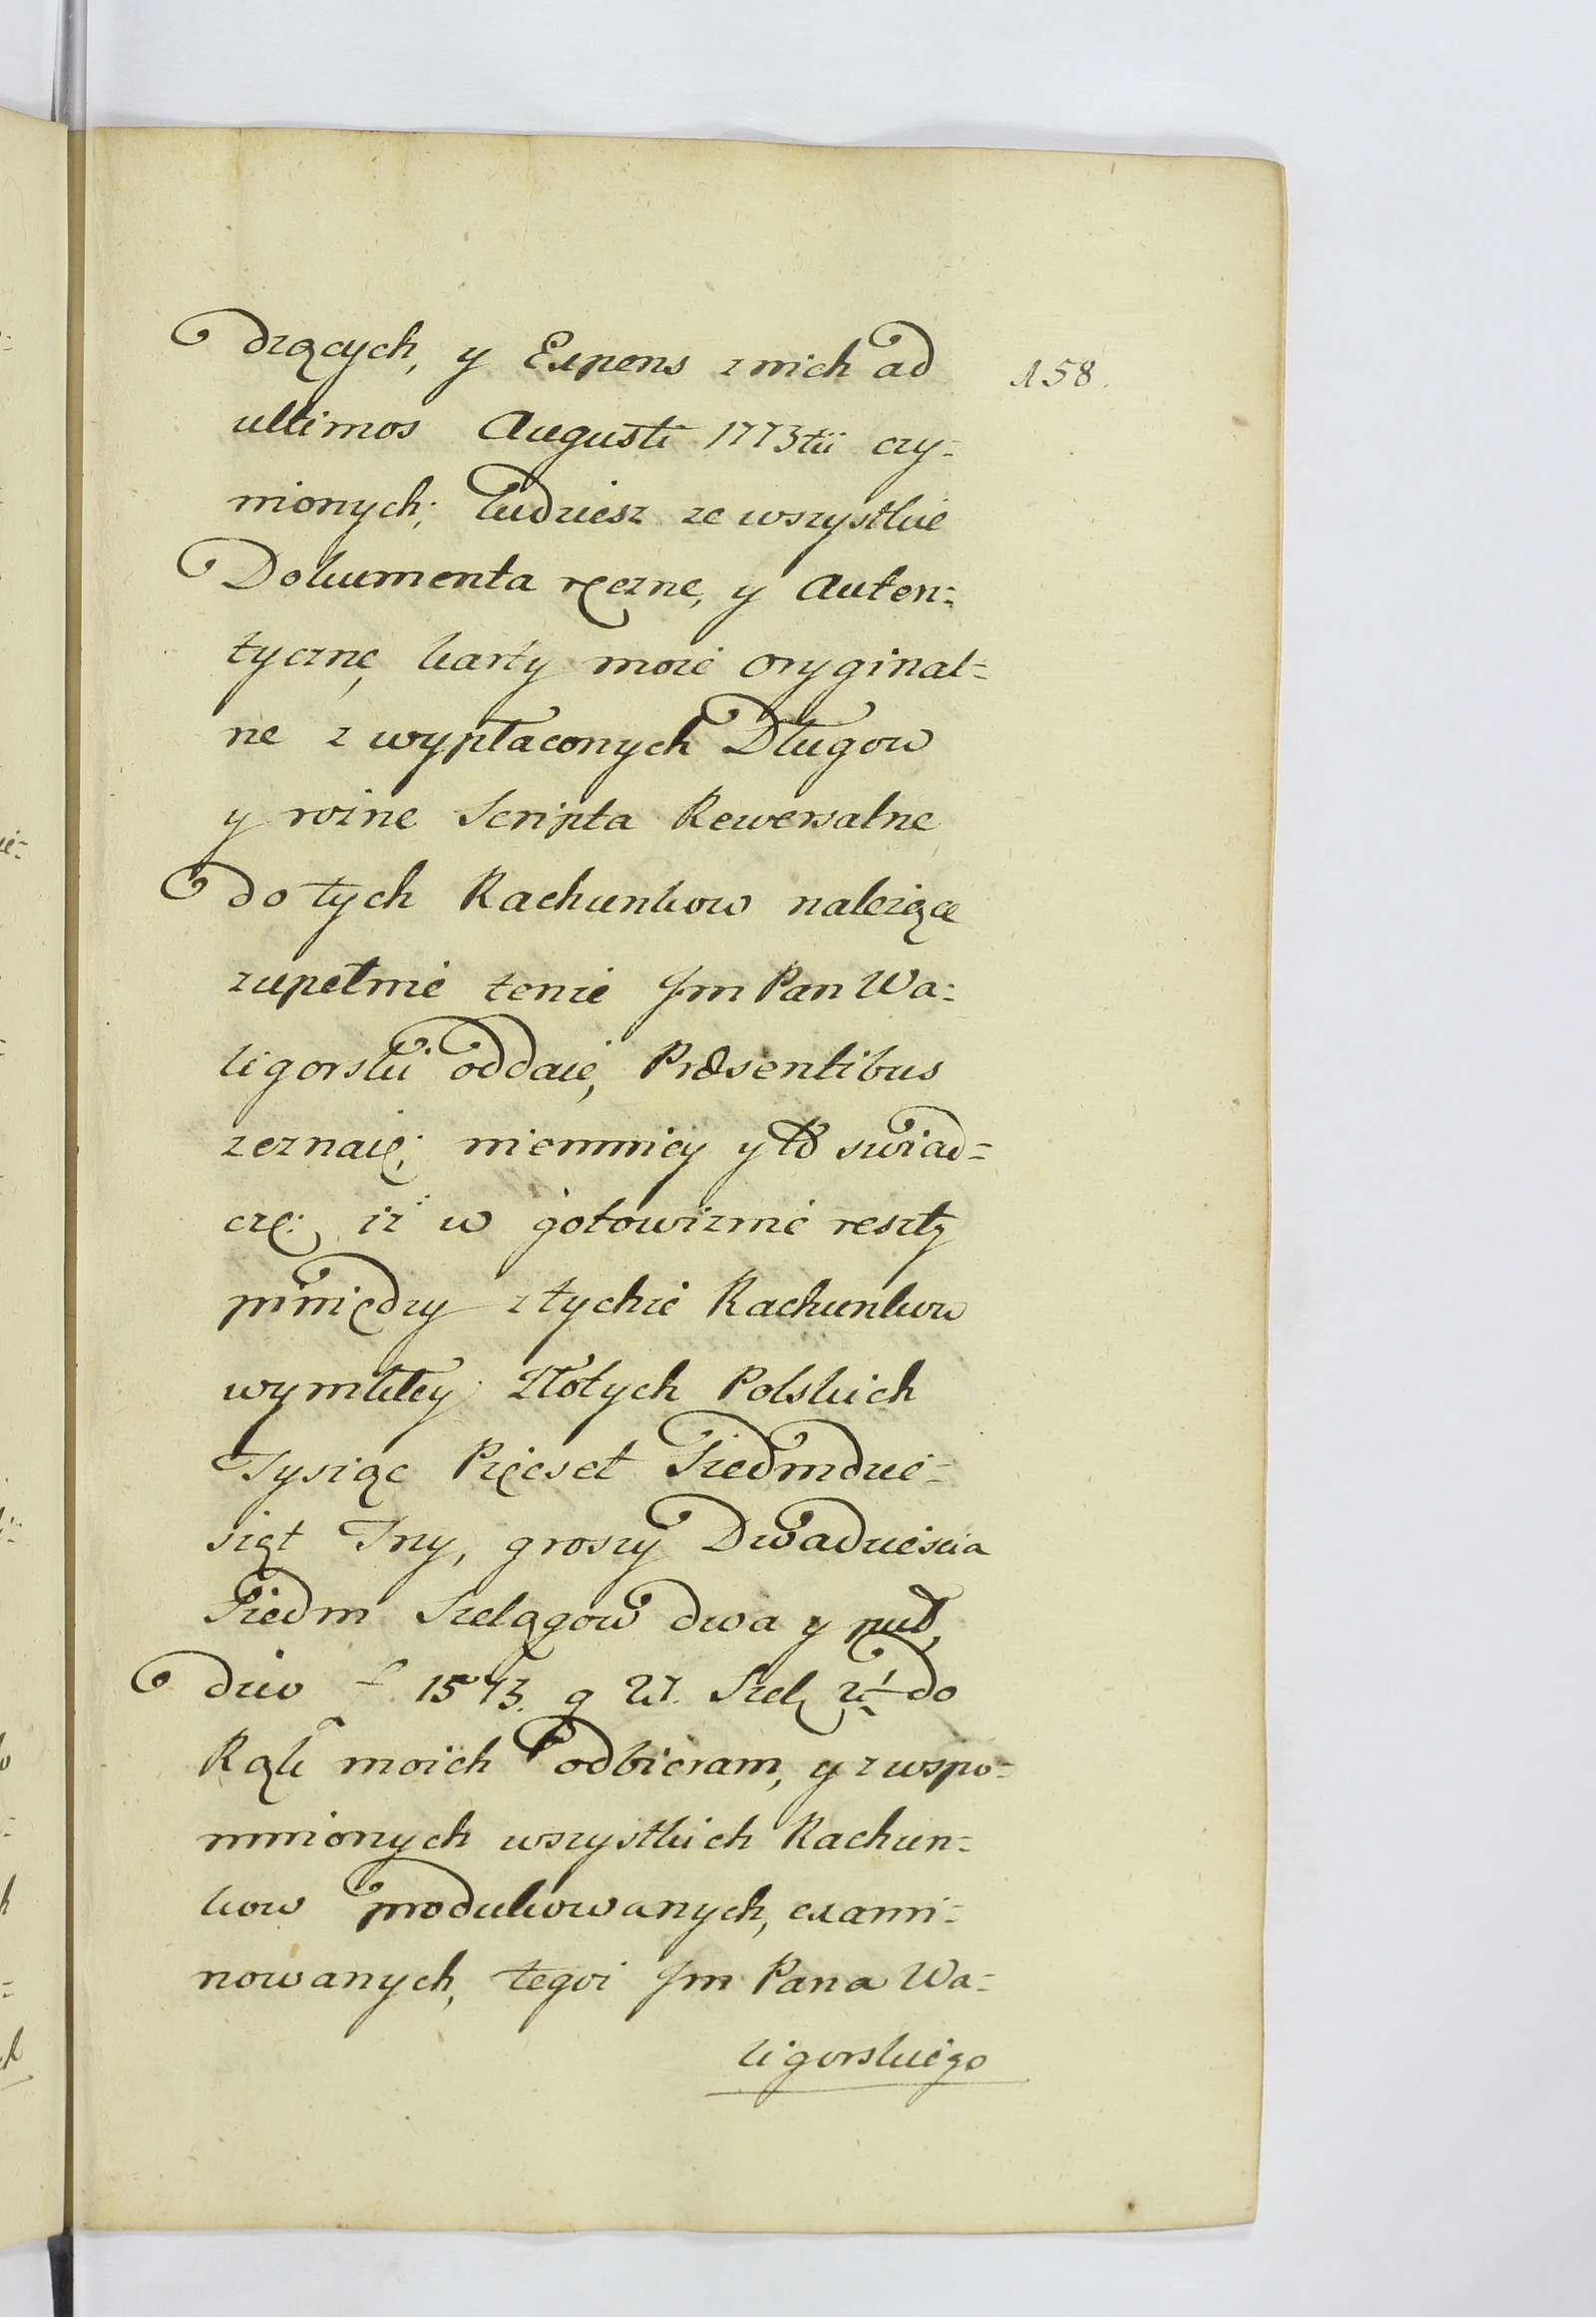 dzących, y Expens z nich ad
158.
ultimos Augusti 1773tii czy=
nionych; tudziesz ze wszystkie
Dokumenta ręczne, y Auten=
tyczne, karty moie oryginal=
ne z wypłaconych Długow
y rożne Scripta Rewersalne
do tych Rachunkow należące
zupełnie tenże Jm Pan Wa=
ligorski oddaie, Præsentibus
zeznaię; niemniey y to swiad=
czę; iż w gotowiznie reszty
pniędzy z tychże Rachunkow
wynikłey Złotych Polskich
Tysiąc Pięcset Siedmdzie=
siąt Trzy, groszy Dwadzieścia
Siedm Szelągow dwa y puł,
dico f 1573. g 27. Szel 2½ do
Rąk moich odbieram, y z wspo=
mnionych wszystkich Rachun=
kow produkowanych, exami=
nowanych, tegoż Jm Pana Wa=
ligorskiego